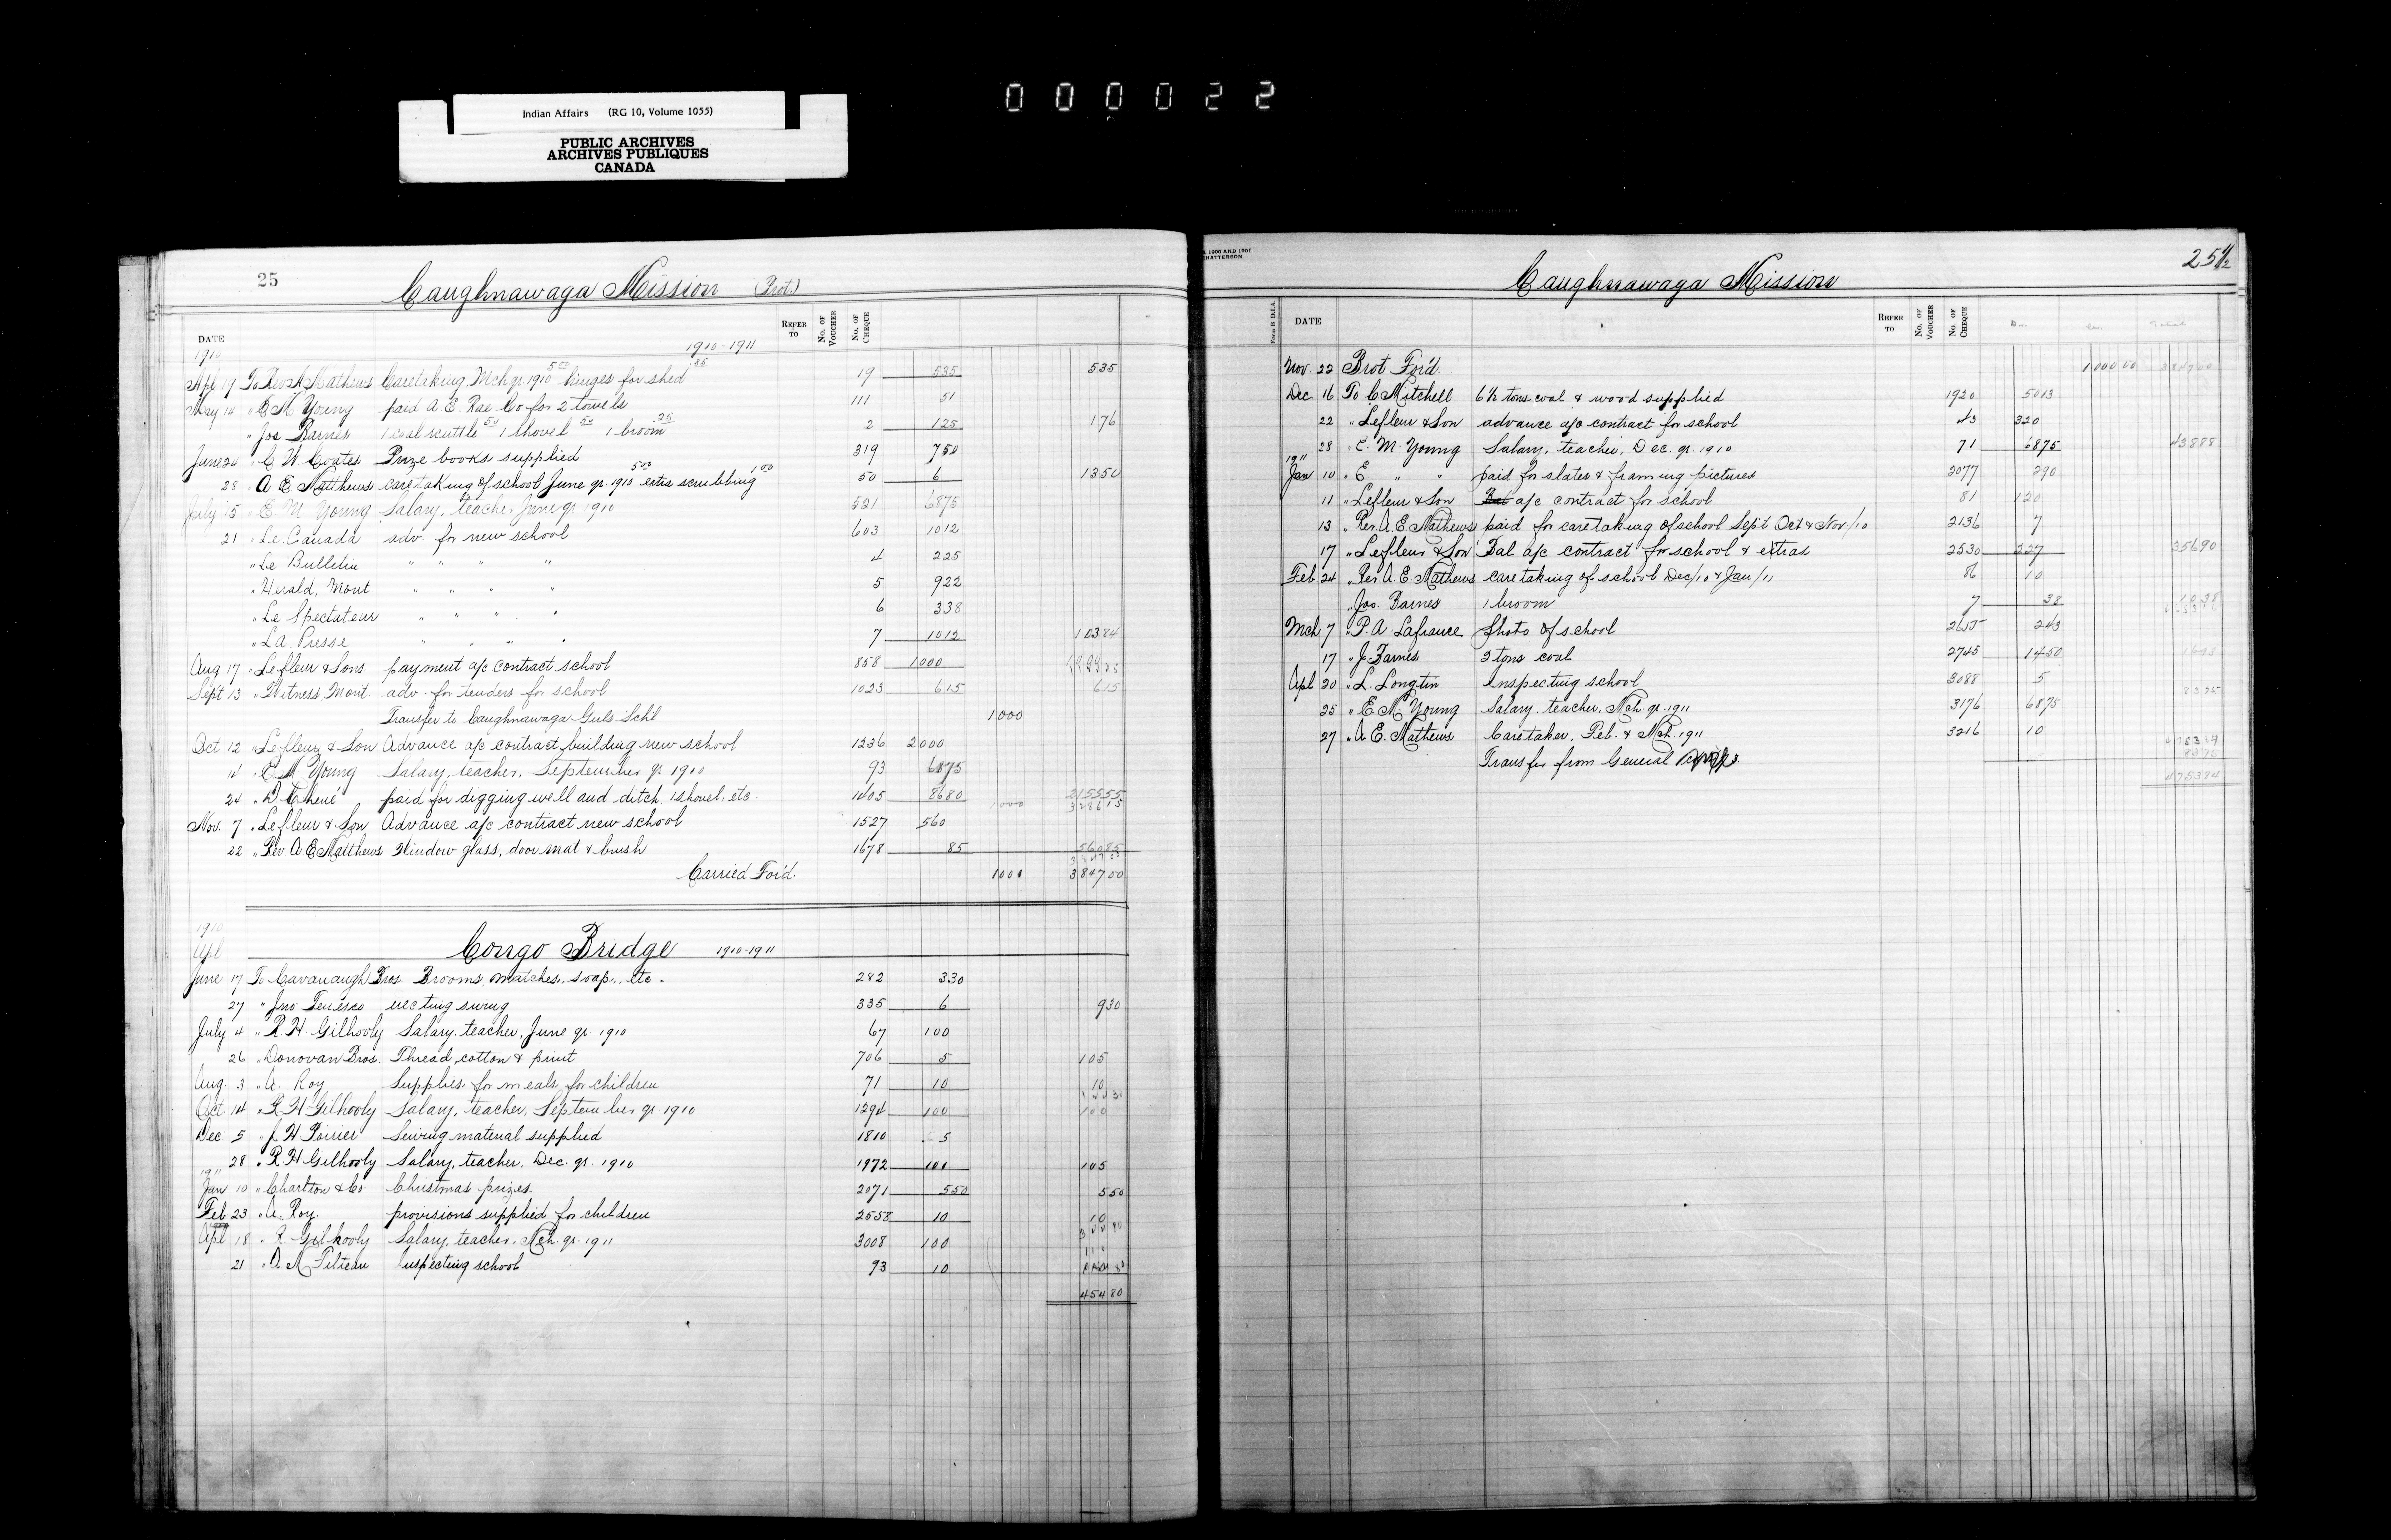 000022
Indian Affairs (RG 10, Volume 1055)
PUBLIC ARCHIVES
ARCHIVES PUBLIQUES
CANADA
25
Caughnawaga Mission (Prot)
DATE
REFER TO
No. OF VOUCHER
No. OF CHEQUE
1910
1910-1911
Apl 17 To Rev A Mathews Caretaking Mch qr 1910 5 00 hinges for shed 35 19 535 535
May 10 " E M Young paid A. E. Rae Co for 2 towels 111 51
" Jos Barnes 1 coal scuttle 50 1 shovel 50 1 broom 25 2 125 176
June 20 " C W Coates Prize books supplied 319 750
28 " A. E. Matthews caretaking of school June qr 1910 5 00 extra scrubbing 1 00 50 6 1350
July 15 " E. M Young Salary, teacher June qr 1910 521 6875
21 " Le Canada adv. for new school 603 1012
" Le Bulletin " " " " 4 225
" Herald, Mont " " " " 5 922
" Le Spectateur " " " " 6 338
" La Presse " " " " 7 1012 10384
Aug 17 " Lefleur & Sons payment a/c contract school 858 1000
Sept 13 " Witness, Mont. adv. for tenders for school 1023 615 615
Transfer to Caughnawaga Girls Schl 1000
Oct 12 " Lefleur & Son Advance a/c contract building new school 1236 2000
14 " E M Young Salary, teacher, September qr 1910 93 6875
24 " paid for digging well and ditch, 1 shovel, etc. 1405 8680 215555
Nov. 7 " Lefleur & Son Advance a/c contract new school 1527 560
22 " Rev. A. E. Matthews Window glass, door mat & brush 1678 85 56085
Carried For'd. 1000 3847.00
1910
Apl
Congo Bridge 1910-1911
June 17 To Cavanaugh Bros. Brooms, matches, soap, etc. 282 330
27 " Jno erecting swing 335 6 930
July 4 " R H Gilhooly Salary, teacher, June qr. 1910 67 100
26 " Donovan Bros. Thread, cotton & print 706 5 105
Aug. 3 " A. Roy Supplies for meals for children 71 10 10
Oct 14 " R H Gilhooly Salary, teacher, September qr 1910 1294 100 100
Dec. 5 " J H Poirier Sewing material supplied 1810 5
28 " R H Gilhooly Salary, teacher, Dec. qr. 1910 1972 100 105
1911
Jan 10 " Charlton & Co Christmas prizes 2071 550 550
Feb 23 " A. Roy. provisions supplied for children 2558 10 10
Apl 18 " R. Gilhooly Salary, teacher, Mch. qr. 1911 3008 100
21 " A M Inspecting school 73 10
45480
1900 AND 1901
CHATTERSON
Caughnawaga Mission
25 1/2
Form B D.I.A
DATE
REFER TO
No. OF VOUCHER
No. OF CHEQUE
Dr. Cr. Total
Nov. 22 Brot For'd 1000 00 384700
Dec 16 To C Mitchell 6½ tons coal & wood supplied 1920 5013
22 " Lefleur & Son advance a/c contract for school 43 320
28 " E. M. Young Salary, teacher, Dec. qr. 1910 71 6875 43888
1911
Jan 10 " E " " paid for slates & framing pictures 2077 290
11 " Lefleur & Son Bal a/c contract for school 81 120
13 " Rev. A. E. Mathews paid for caretaking of school Sept Oct & Nov/10 2136 7
17 " Lefleur & Son Bal a/c contract for school & extras 2530 227 35690
Feb 24 " Rev. A. E. Mathews caretaking of school Dec/10 & Jan/11 86 10
" Jos. Barnes 1 broom 7 38 1038
Mch 7 " P. A. Lafrance Photo of school 2655 243
17 " J. Barnes 2 tons coal 2745 1450
Apl 20 " L. Longtin Inspecting school 3088 5
25 " E. M. Young Salary, teacher, Mch. qr. 1911 3176 6875
27 " A E. Mathews Caretaker, Feb. & Mch. 1911 3216 10
Transfer from General
475384